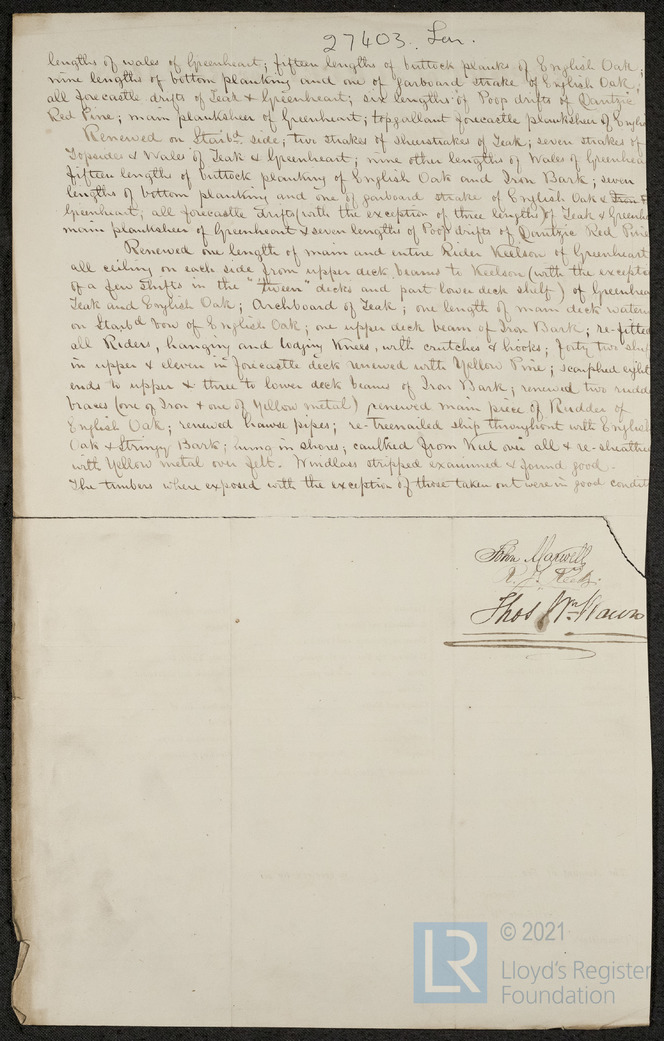 27403 Lon.
lengths of wales of Greenheart; fifteen lengths of buttock planks of English Oak;
nine lengths of bottom planking and one of garboard strake of English Oak;
all forecastle drifts of Teak & Greenheart; six lengths of Poop drifts of Dantzic
Red Pine; main planksheer of Greenheart; topgallant forecastle planksheer of Englis
Renewed on Starbd. side; two strakes of sheerstrakes of Teak; seven strakes of
Topsides & Wales of Teak & Greenheart; nine other lengths of Wales of Greenhea
fifteen lengths of buttock planking of English Oak and Iron Bark; seven
lengths of bottom planking and one of garboard strake of English Oak & Iron
Greenheart; all forecastle drifts (with the exception of three lengths) of Teak & Greenhe
main planksheer of Greenheart & seven lengths of Poop drifts of Dantzic Red Pine
Renewed one length of main and entire Rider Keelson of Greenheart
all ceiling on each side from upper deck beams to Keelson (with the except
of a few shifts in the "tween" decks and part lower deck shelf) of Greenhea
Teak and English Oak; Archboard of Teak; one length of main deck water
on Starbd bow of English Oak; one upper deck beam of Iron Bark; re-fitted
all Riders, hanging and lodging Knees, with crutches & hooks; forty two
in upper & eleven in forecastle deck renewed with Yellow Pine; scarphed eight
ends to upper & three to lower deck beams of Iron Bark; renewed two rudd
braces (one of Iron & one of Yellow metal) renewed main piece of Rudder of
English Oak; renewed hawse pipes; re-treenailed ship throughout with English
Oak & Stringy Bark; hung in shores; caulked from Keel over all & re-sheathe
with Yellow metal over felt. Windlass stripped examined & found good.
The timbers where exposed with the exception of those taken out were in good condit
John Maxwell
Thos Wm
LR
© 2021
Lloyd's Register
Foundation